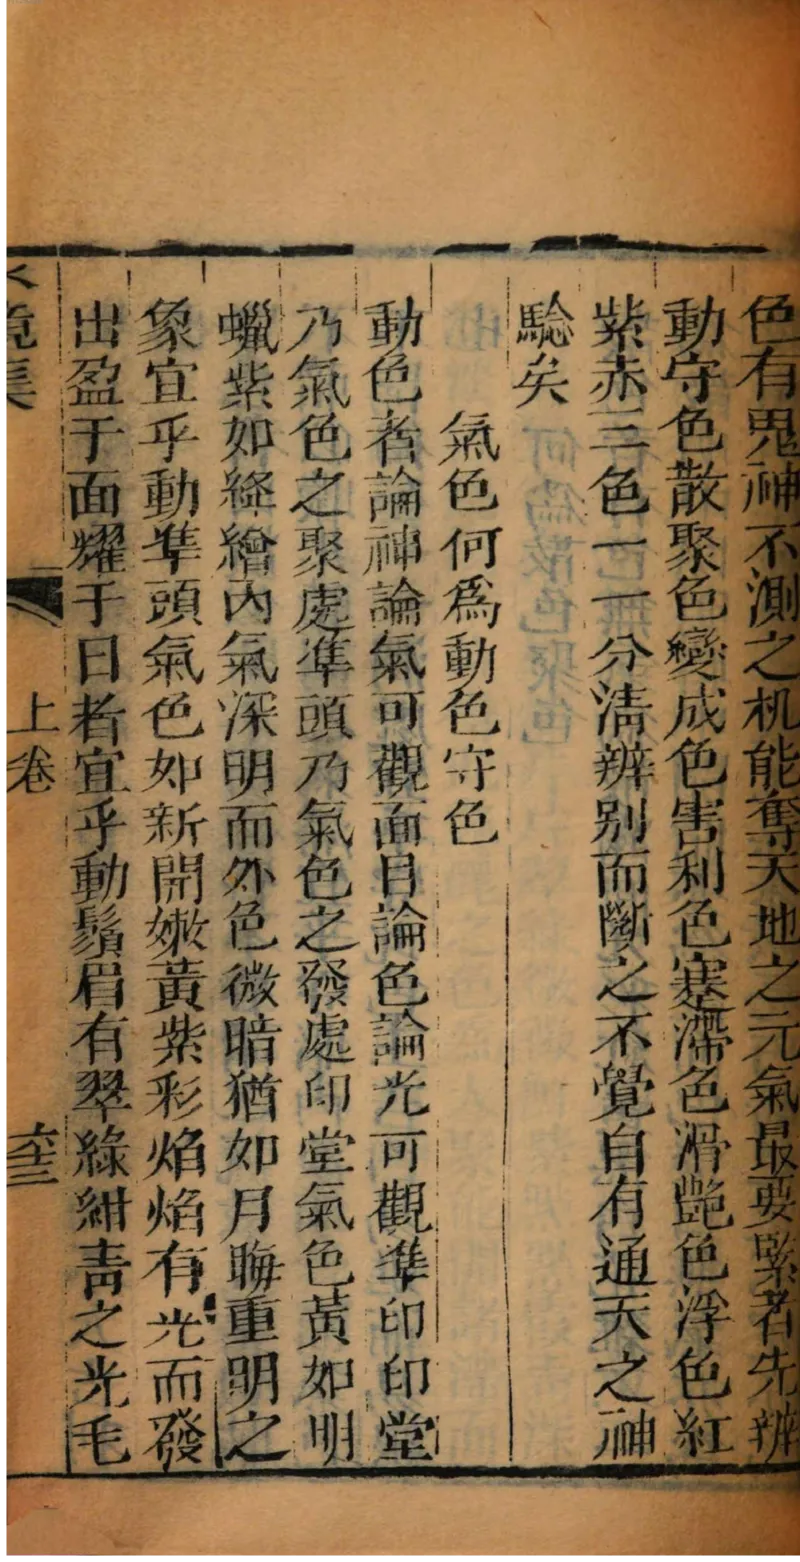 色有鬼神不測之机能奪天地之元氣最要緊者先辨
動守色散聚色變成色害利色蹇滯色滑艷色浮色紅
紫赤三色一一分清辨别而斷之不覺自有通天之神
驗矣
氣色何爲動色守色
動色者論神論氣可觀面目論色論光可觀準印印堂
乃氣色之聚處準頭乃氣色之發處印堂氣色黃如明
蠟紫如絳繪內氣深明而外色微暗猶如月晦重明之
象宜乎動準頭氣色如新開嫩黃紫彩焰焰有光而發
出盈于面耀于日者宜乎動鬚眉有翠綠紺青之光毛
水鏡集
上卷
六十三